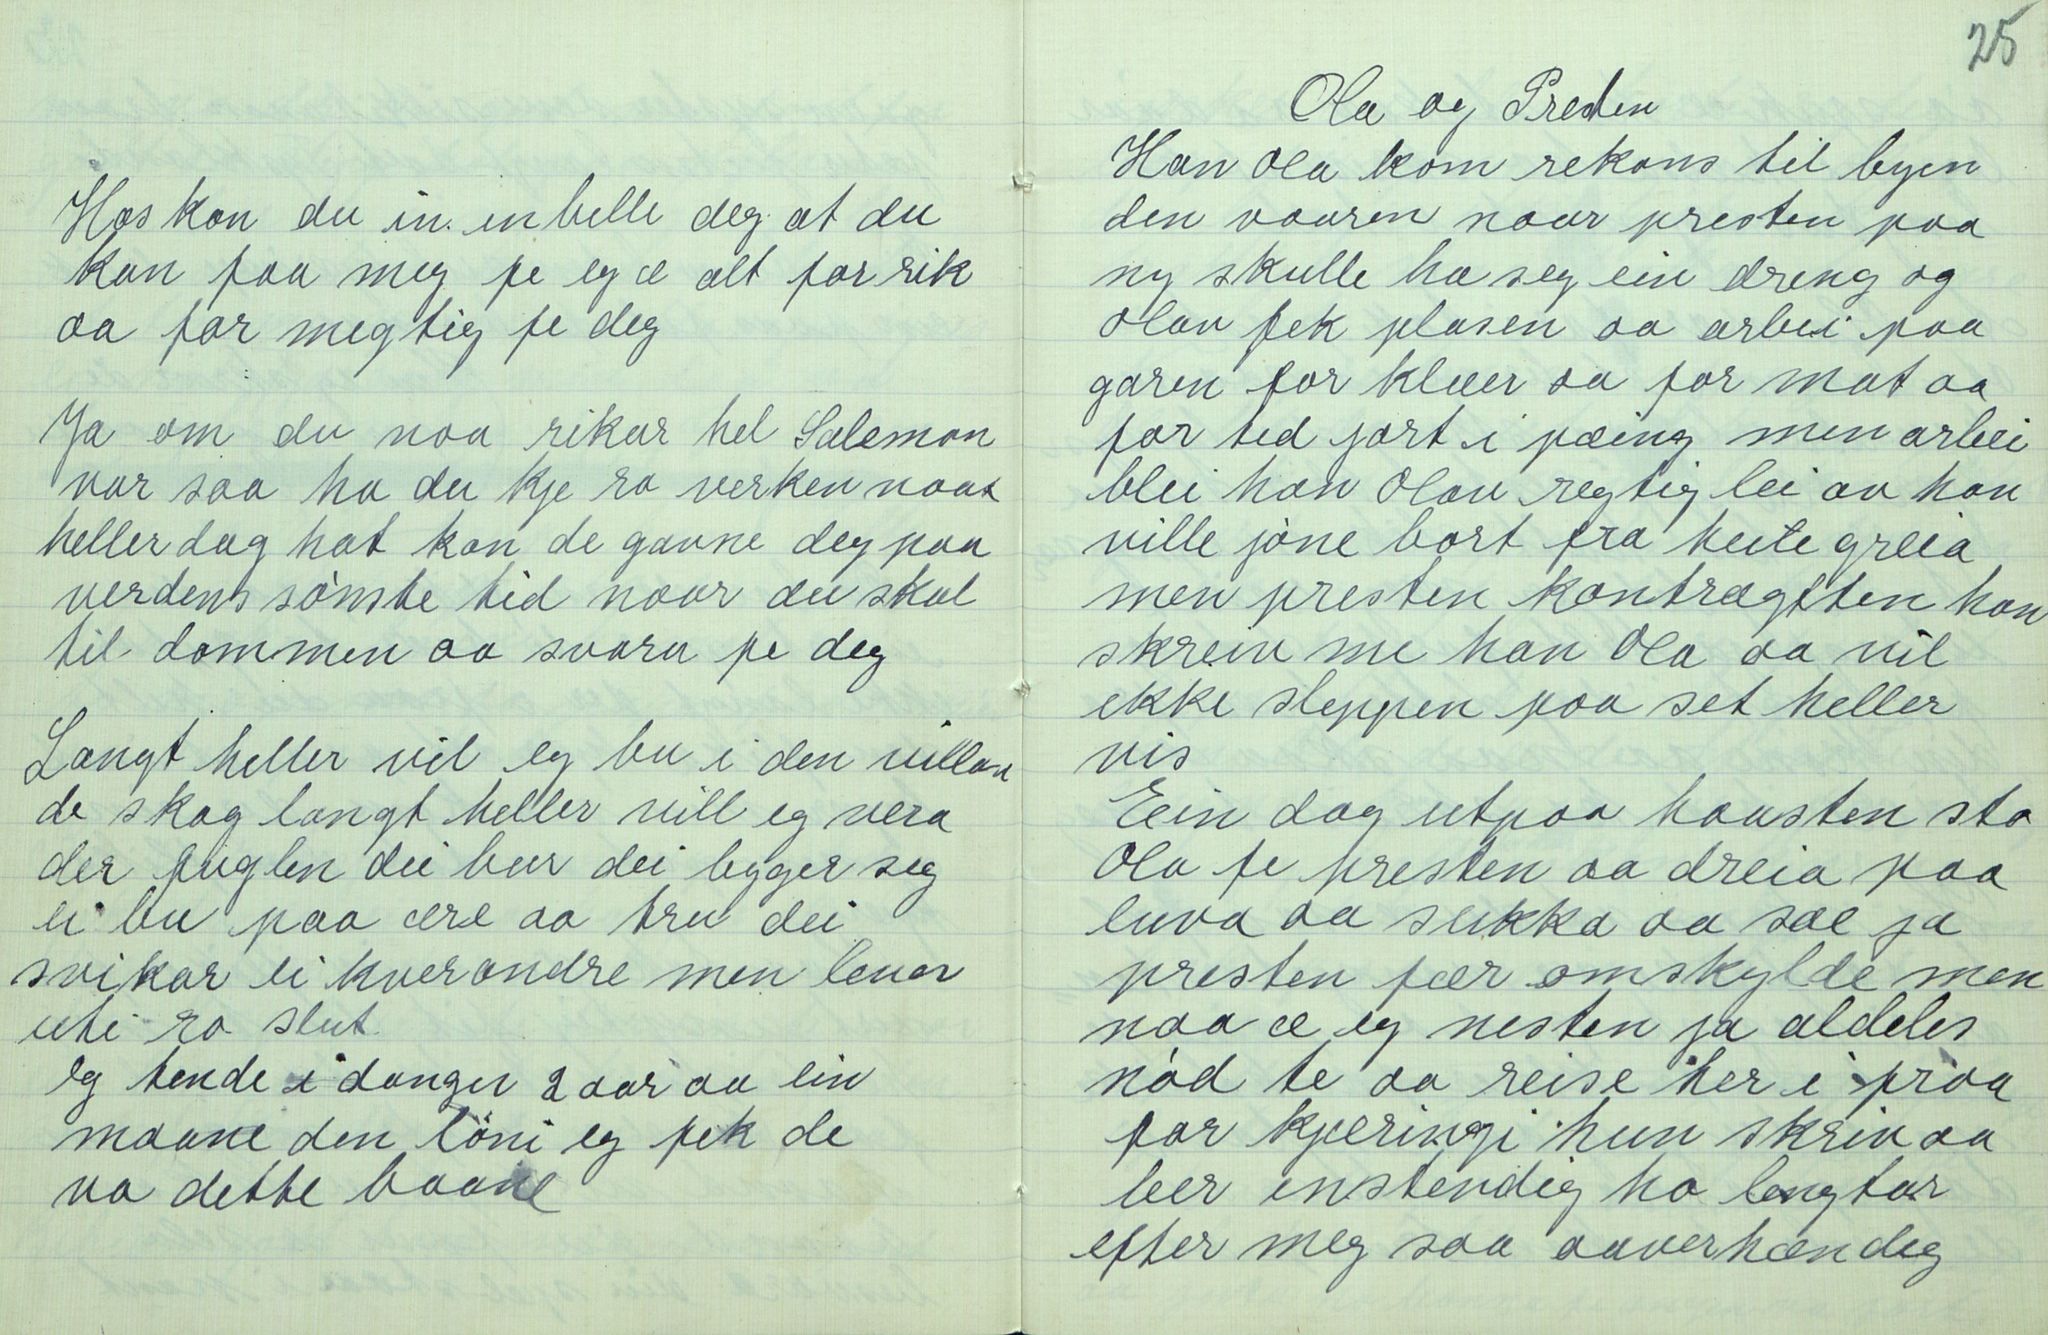 Hos kan du in. en belle deg at du
kan faa meg fe eg æ alt for rik
aa for megtig fe deg
Ja om du noa rikar hel Salemon
var saa ha du kje ro verken naat
heller dag hat kan de gavne deg paa
verdens sønste tid naar du skal
til dommen aa svara fe deg
Langt heller vil eg bu i den villan
de skog langt heller vill eg vera
der fuglen dei bur dei bygger seg
ei bu paa ære aa tru dei
svikar ei kverandre men lever
uti ro slut.
Eg tende i danger 2 aar aa ein
maane den löni eg fek de
va dette baane
25
Ola og Presten
Han Ola kom rekans til byen
den vaaren naar presten paa
ny skulle ha seg ein dreng og
Olav fek plasen aa arbei paa
garen for klæer aa for mat aa
for ted jort i pæing men arbei
blei han Olav regtig lei av han
ville jöne bort fra heite greia
men presten kontragtten han
skreiv me han Ola aa vil
ekke sleppen paa set heller
vis
Eein dag utpaa haasten sto
Ola fe presten aa dreia paa
luva aa sukka aa sae ja
presten fær omskylde men
naa æ eg nesten ja aldeles
nöd te aa reise her i fraa
for kjæringi hun skriv aa
beer instendig ho lengtar
efter meg saa aaverhændig